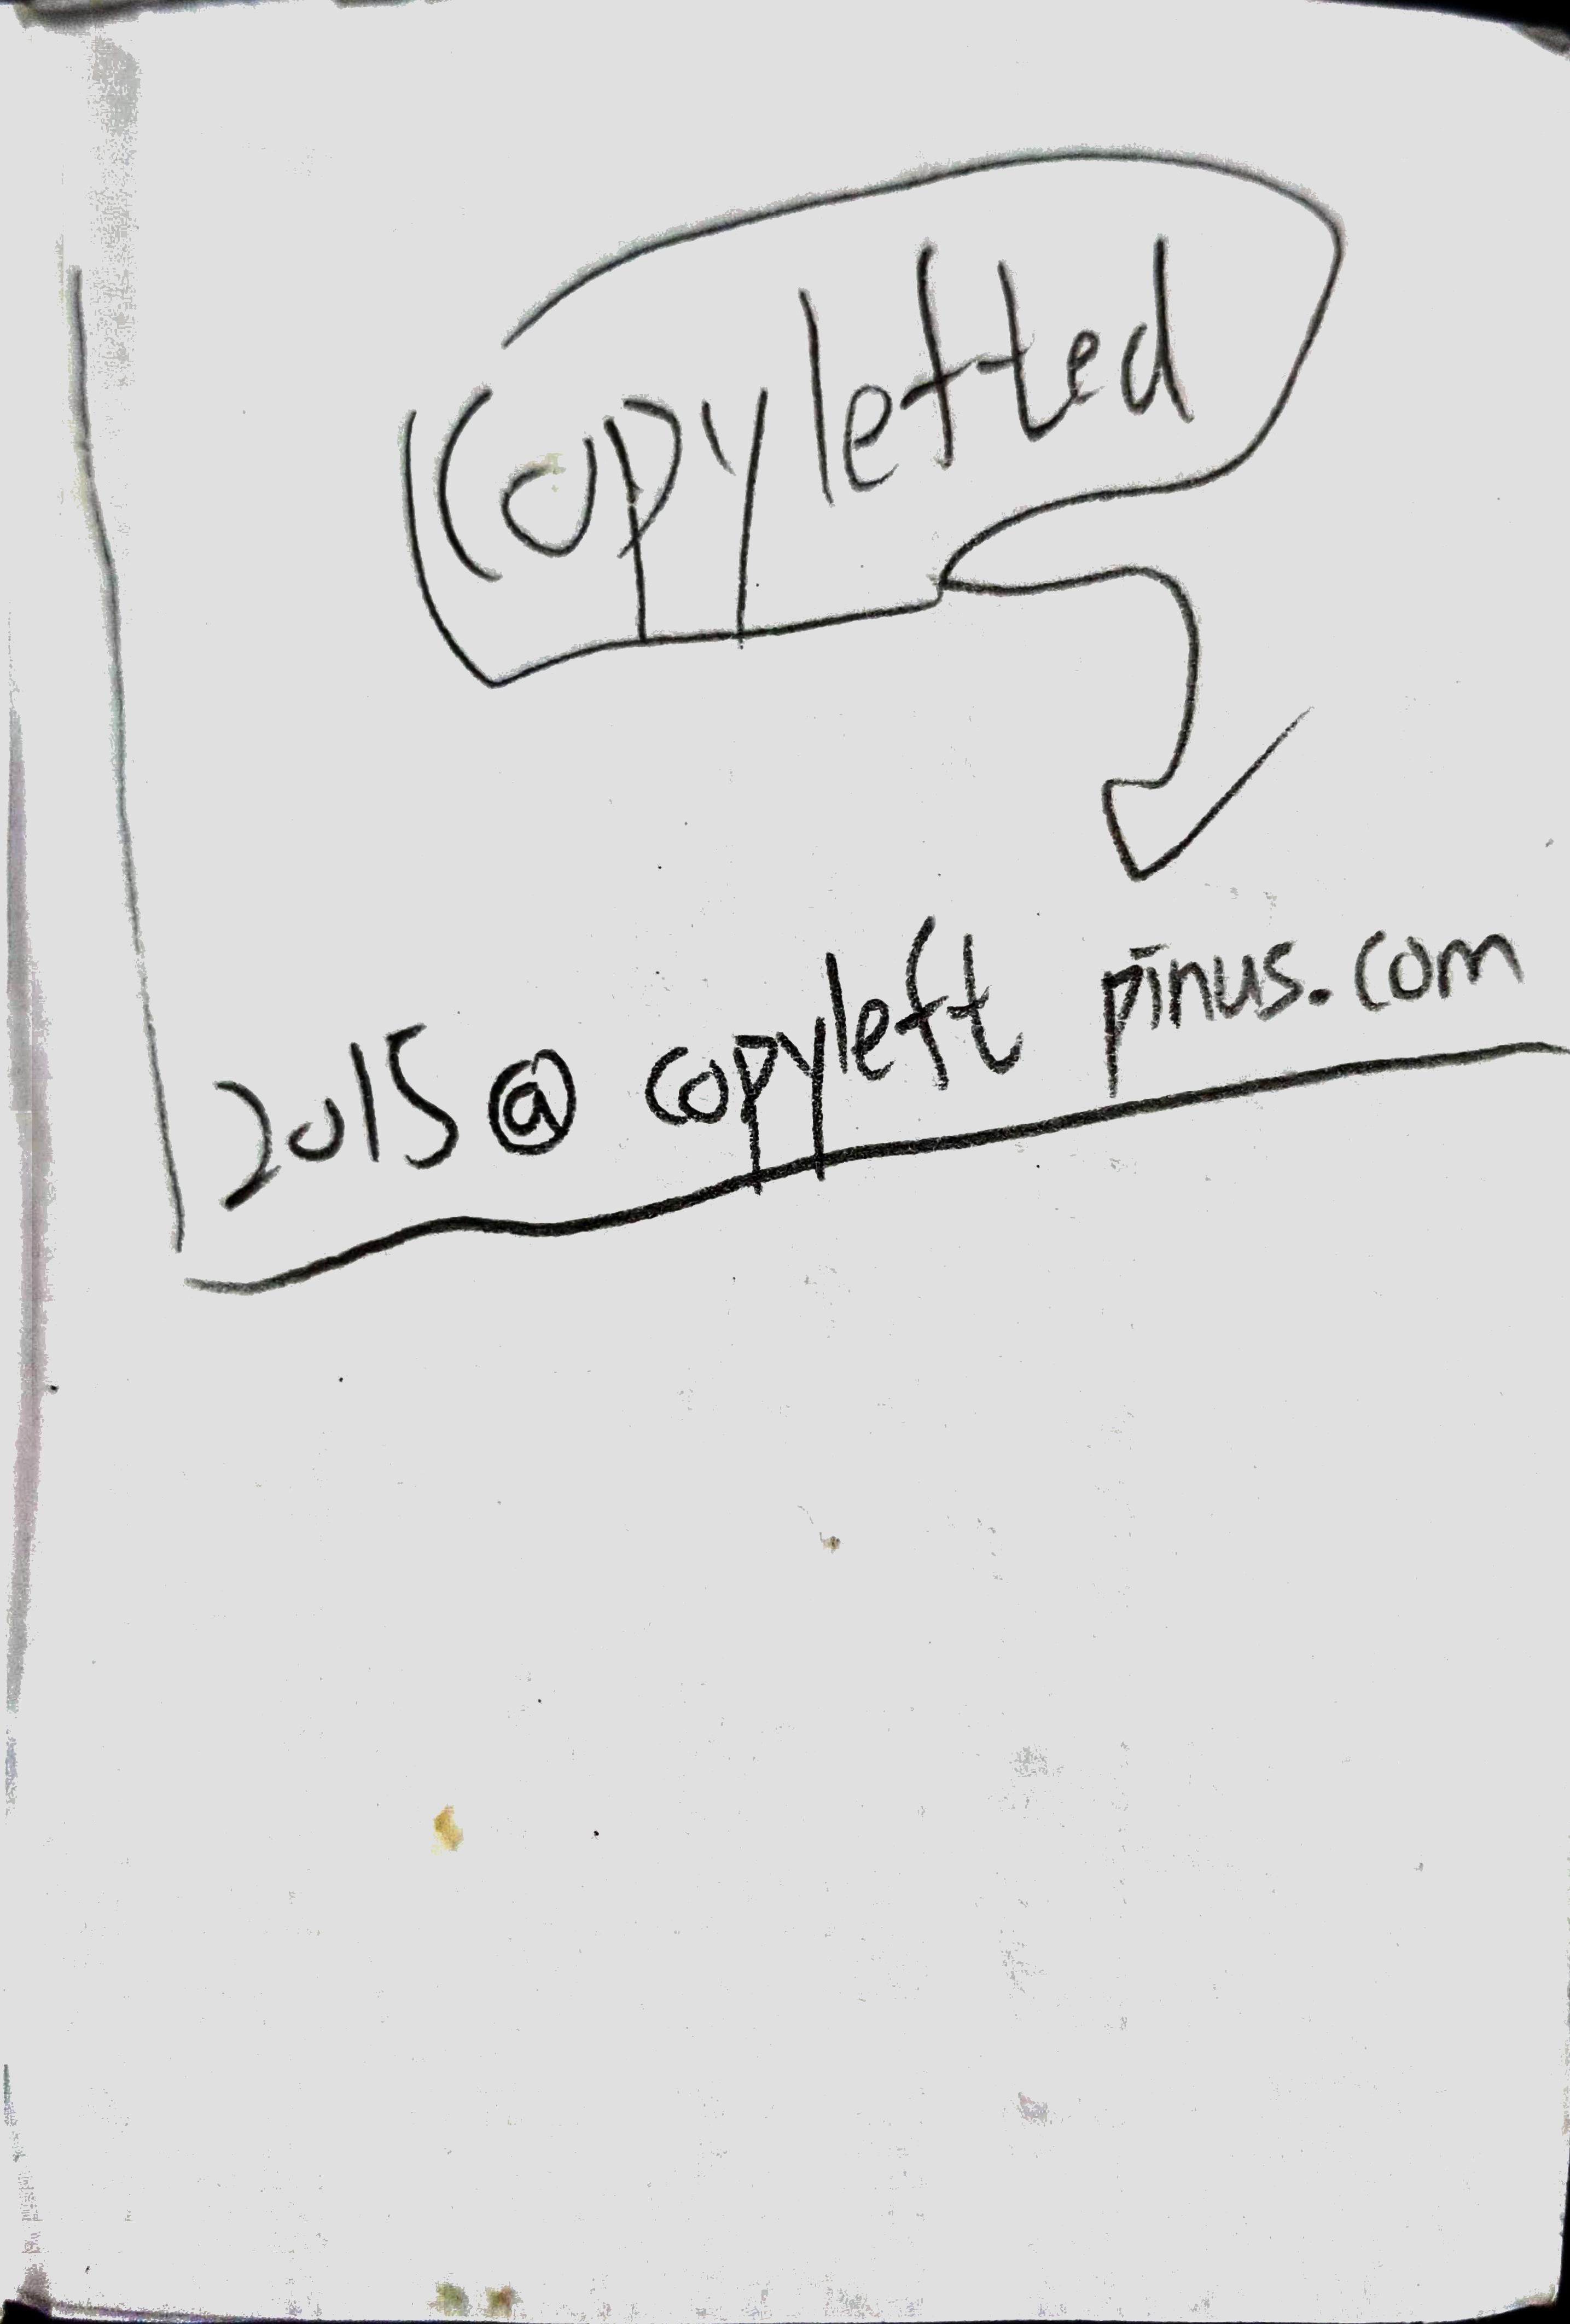 Copylefted
2015 @ copyleft pinus.com